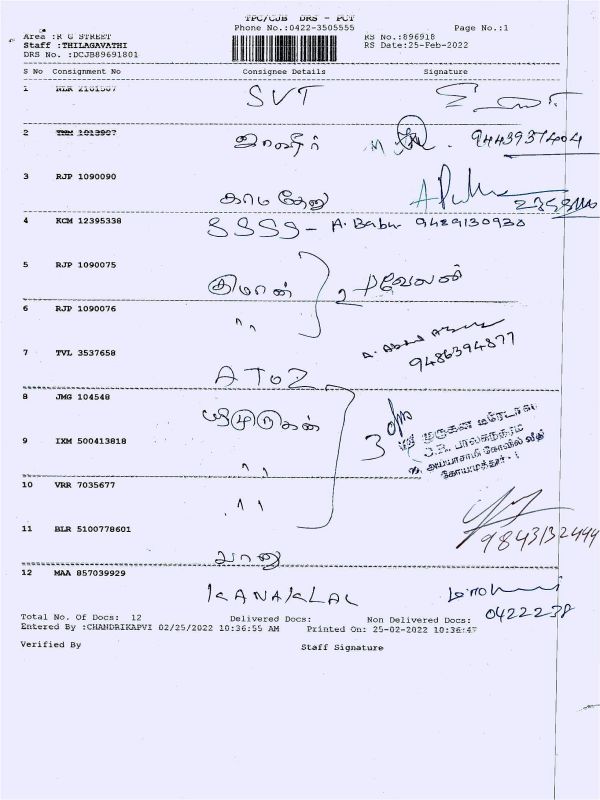 TPC/CJB DRS - PCT
Phone No.:0422-3505555 Page No.:1
Area :R G STREET RS No.:896918
Staff :THILAGAVATHI RS Date:25-Feb-2022
DRS No. :DCJB89691801
S No Consignment No Consignee Details Signature
1 NLR 2161567
SVT
2 TNM 1013907
9443937404
3 RJP 1090090
காமதேனு
4 KCM 12395338
SSSS - A. Babu 9489130930
5 RJP 1090075
2 வேலன்
6 RJP 1090076
" "
7 TVL 3537658
9486394877
A TO Z
8 JMG 104548
3
ஸ்ரீ முருகன்
9 IXM 500413818
" "
10 VRR 7035677
" "
கோயமுத்தூர் - 1
11 BLR 5100778601
9843132444
பானு
12 MAA 857039929
KANAKLAL
0422238
Total No. Of Docs: 12 Delivered Docs: Non Delivered Docs:
Entered By :CHANDRIKAPVI 02/25/2022 10:36:55 AM Printed On: 25-02-2022 10:36:47
Verified By Staff Signature